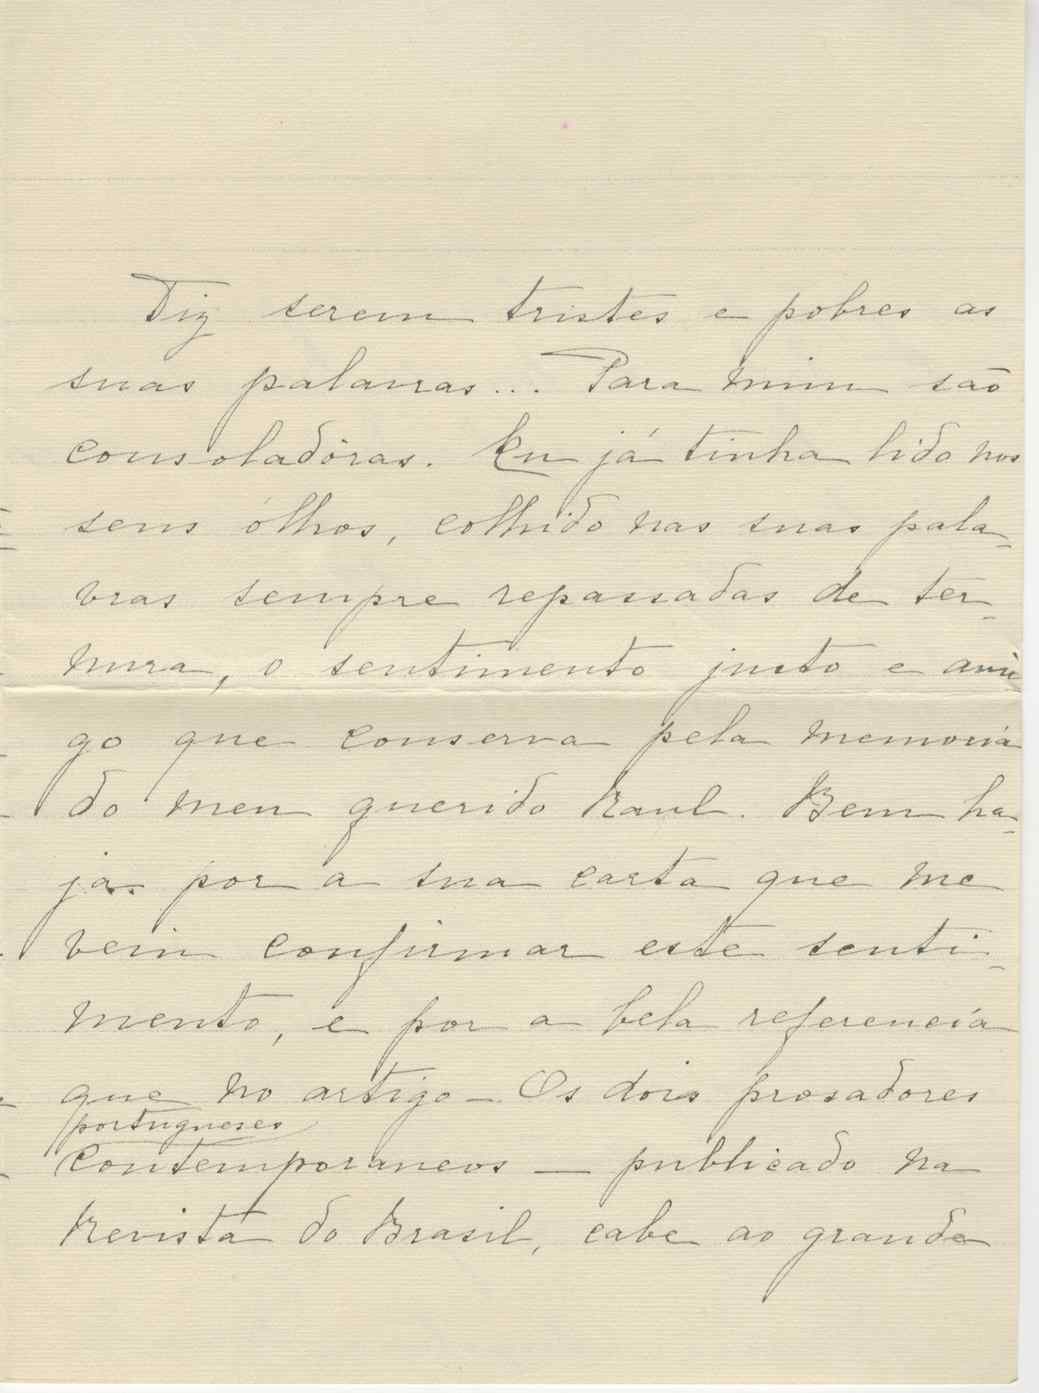 Diz serem tristes e pobres as
suas palavras... Para mim são
consoladôras. Eu já tinha lido nos
seus ólhos, colhido nas suas pala-
vras sempre repassadas de ter-
nura, o sentimento justo e ami
go que conserva pela memoria
do meu querido Raul. Bem ha-
ja por a sua carta que me
vem confirmar este senti-
mento, e por a bela referencia
que no artigo - Os dois prosadores
portugueses
contemporaneos — publicado na
Revista do Brasil, cabe ao grande